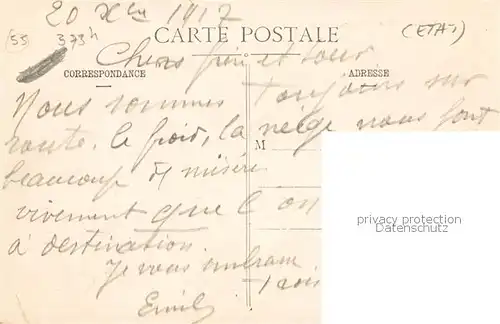 20 Xbre 1917
(55) 373h (ETAT)
CARTE POSTALE
Chers frère et sœur
CORRESPONDANCE
ADRESSE
Nous sommes toujours sur
route. le froid, la neige nous font
M
beaucoup de misère
vivement que l on
à destination.
Je vous embrasse
trois
Emile
privacy protection
Datenschutz